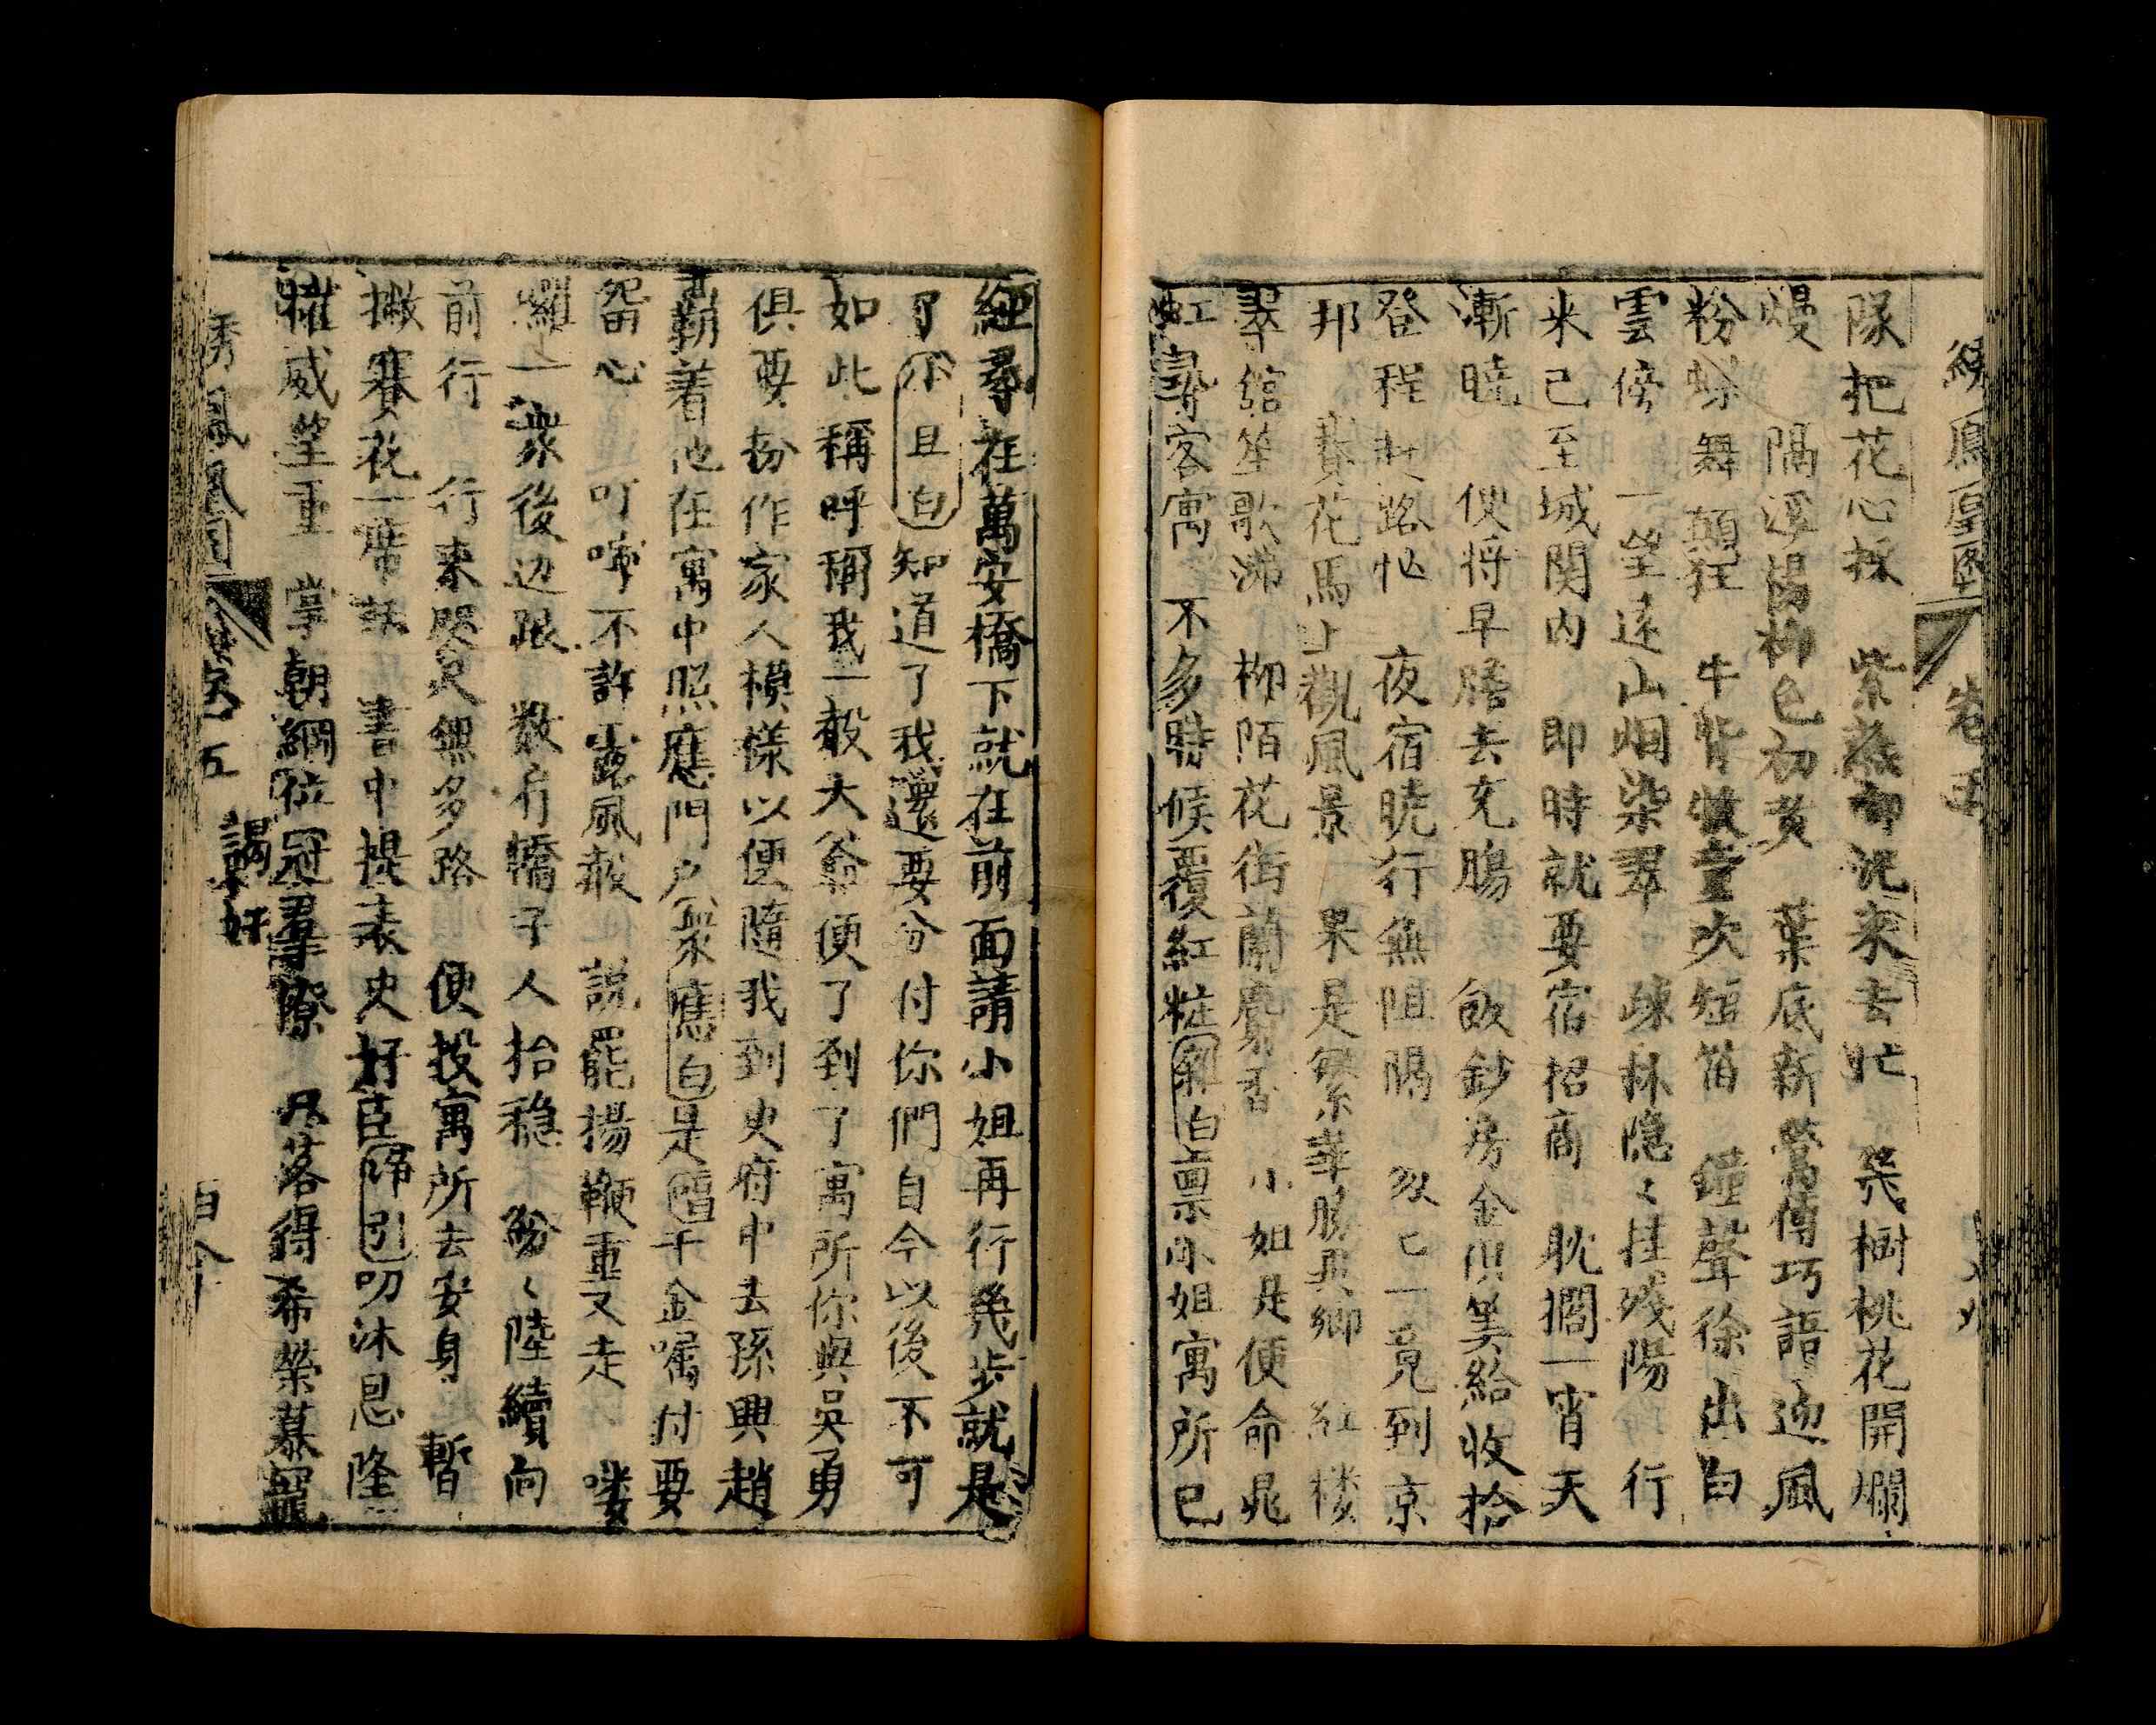 鳳凰圖 卷五
隊把花心採 紫燕啣泥來去忙 幾樹桃花開爛
熳 隔溪楊柳色初黃 葉底新鶯傳巧語 迎風
粉蝶舞顛狂 牛背牧童吹短笛 鐘聲徐出白
雲傍 一望遠山烟染翠 疎林隱〻挂殘陽 行
来已至城関内 即時就要宿招商 耽擱一宵天
漸曉 便將早膳去充腸 飯鈔房金俱筭給 收拾
登程赴路忙 夜宿曉行無阻隔 一竟到京
邦 賽花馬上觀風景 果是繁華勝異鄉 紅楼
翠舘笙歌沸 柳陌花街蘭麝香 小姐是便命晁
虹尋客寓 不多時候覆紅粧 白禀小姐寓所已
經尋在萬安橋下就在前面請小姐再行幾步就是
了 小旦白 知道了我還要分付你們自今以後不可
如此稱呼稱我一聲大爺便了到了寓所你與吳勇
俱要扮作家人模樣以便隨我到史府中去孫興趙
覇着他在寓中照應門户 衆應白 是 唱 千金囑付要
留心 叮嚀不許露風聲 説罷揚鞭重又走 嘍
囉一衆後边跟 数肩轎子人抬穏 紛〻陸續向
前行 行來咫尺無多路 便投寓所去安身 暫
撇賽花一席話 書中提表史奸臣 引 叨沐恩隆
權威望重 掌朝綱位冠羣僚 落得希榮慕寵
綉鳳凰圖 卷五 謁奸